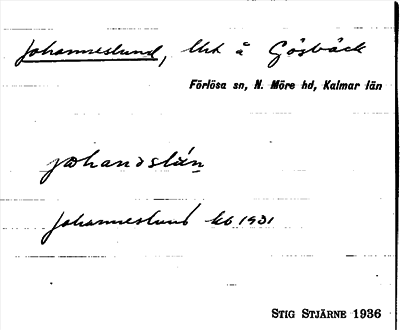 Johanneslund, lht å Gösbäck
Förlösa sn, N. Möre hd, Kalmar län
johanslún
Johanneslund kb 1931
STIG STJÄRNE 1936